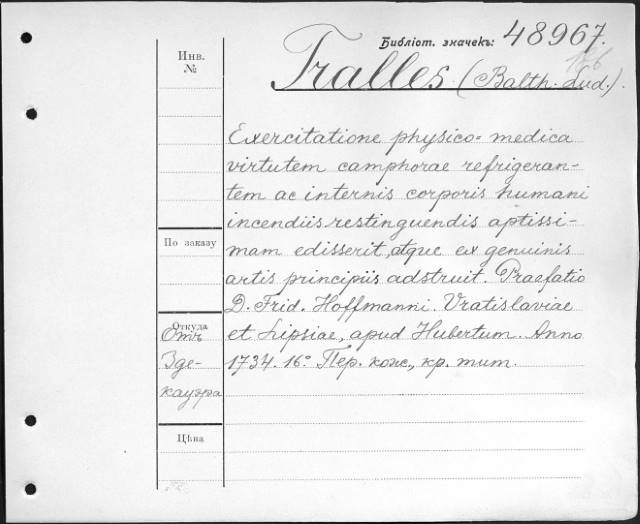 Библіот. значекъ: 48967.
Инв.
№
Tralles (Balth. Lud.).
Exercitatione physico=medica
virtutem camphorae refrigeran-
tem ac internis corporis humani
incendiis restinguendis aptissi-
mam edisserit, atque ex genuinis
artis principiis adstruit. Praefatio
D. Frid. Hoffmanni. Vratislaviae
et Lipsiae, apud Hubertum. Anno
1734. 16° Пер. кож., кр. тит.
По заказу
Откуда
Отъ
Зде-
кауэра
Цѣна